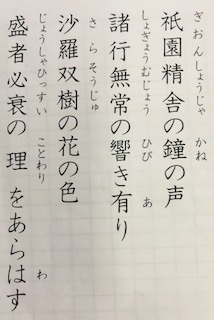 ぎおんしょうじゃ かね
祇園精舎の鐘の声
しょぎょうむじょう ひび あ
諸行無常の響き有り
さらそうじゅ
沙羅双樹の花の色
じょうしゃひっすい ことわり わ
盛者必衰の理をあらはす